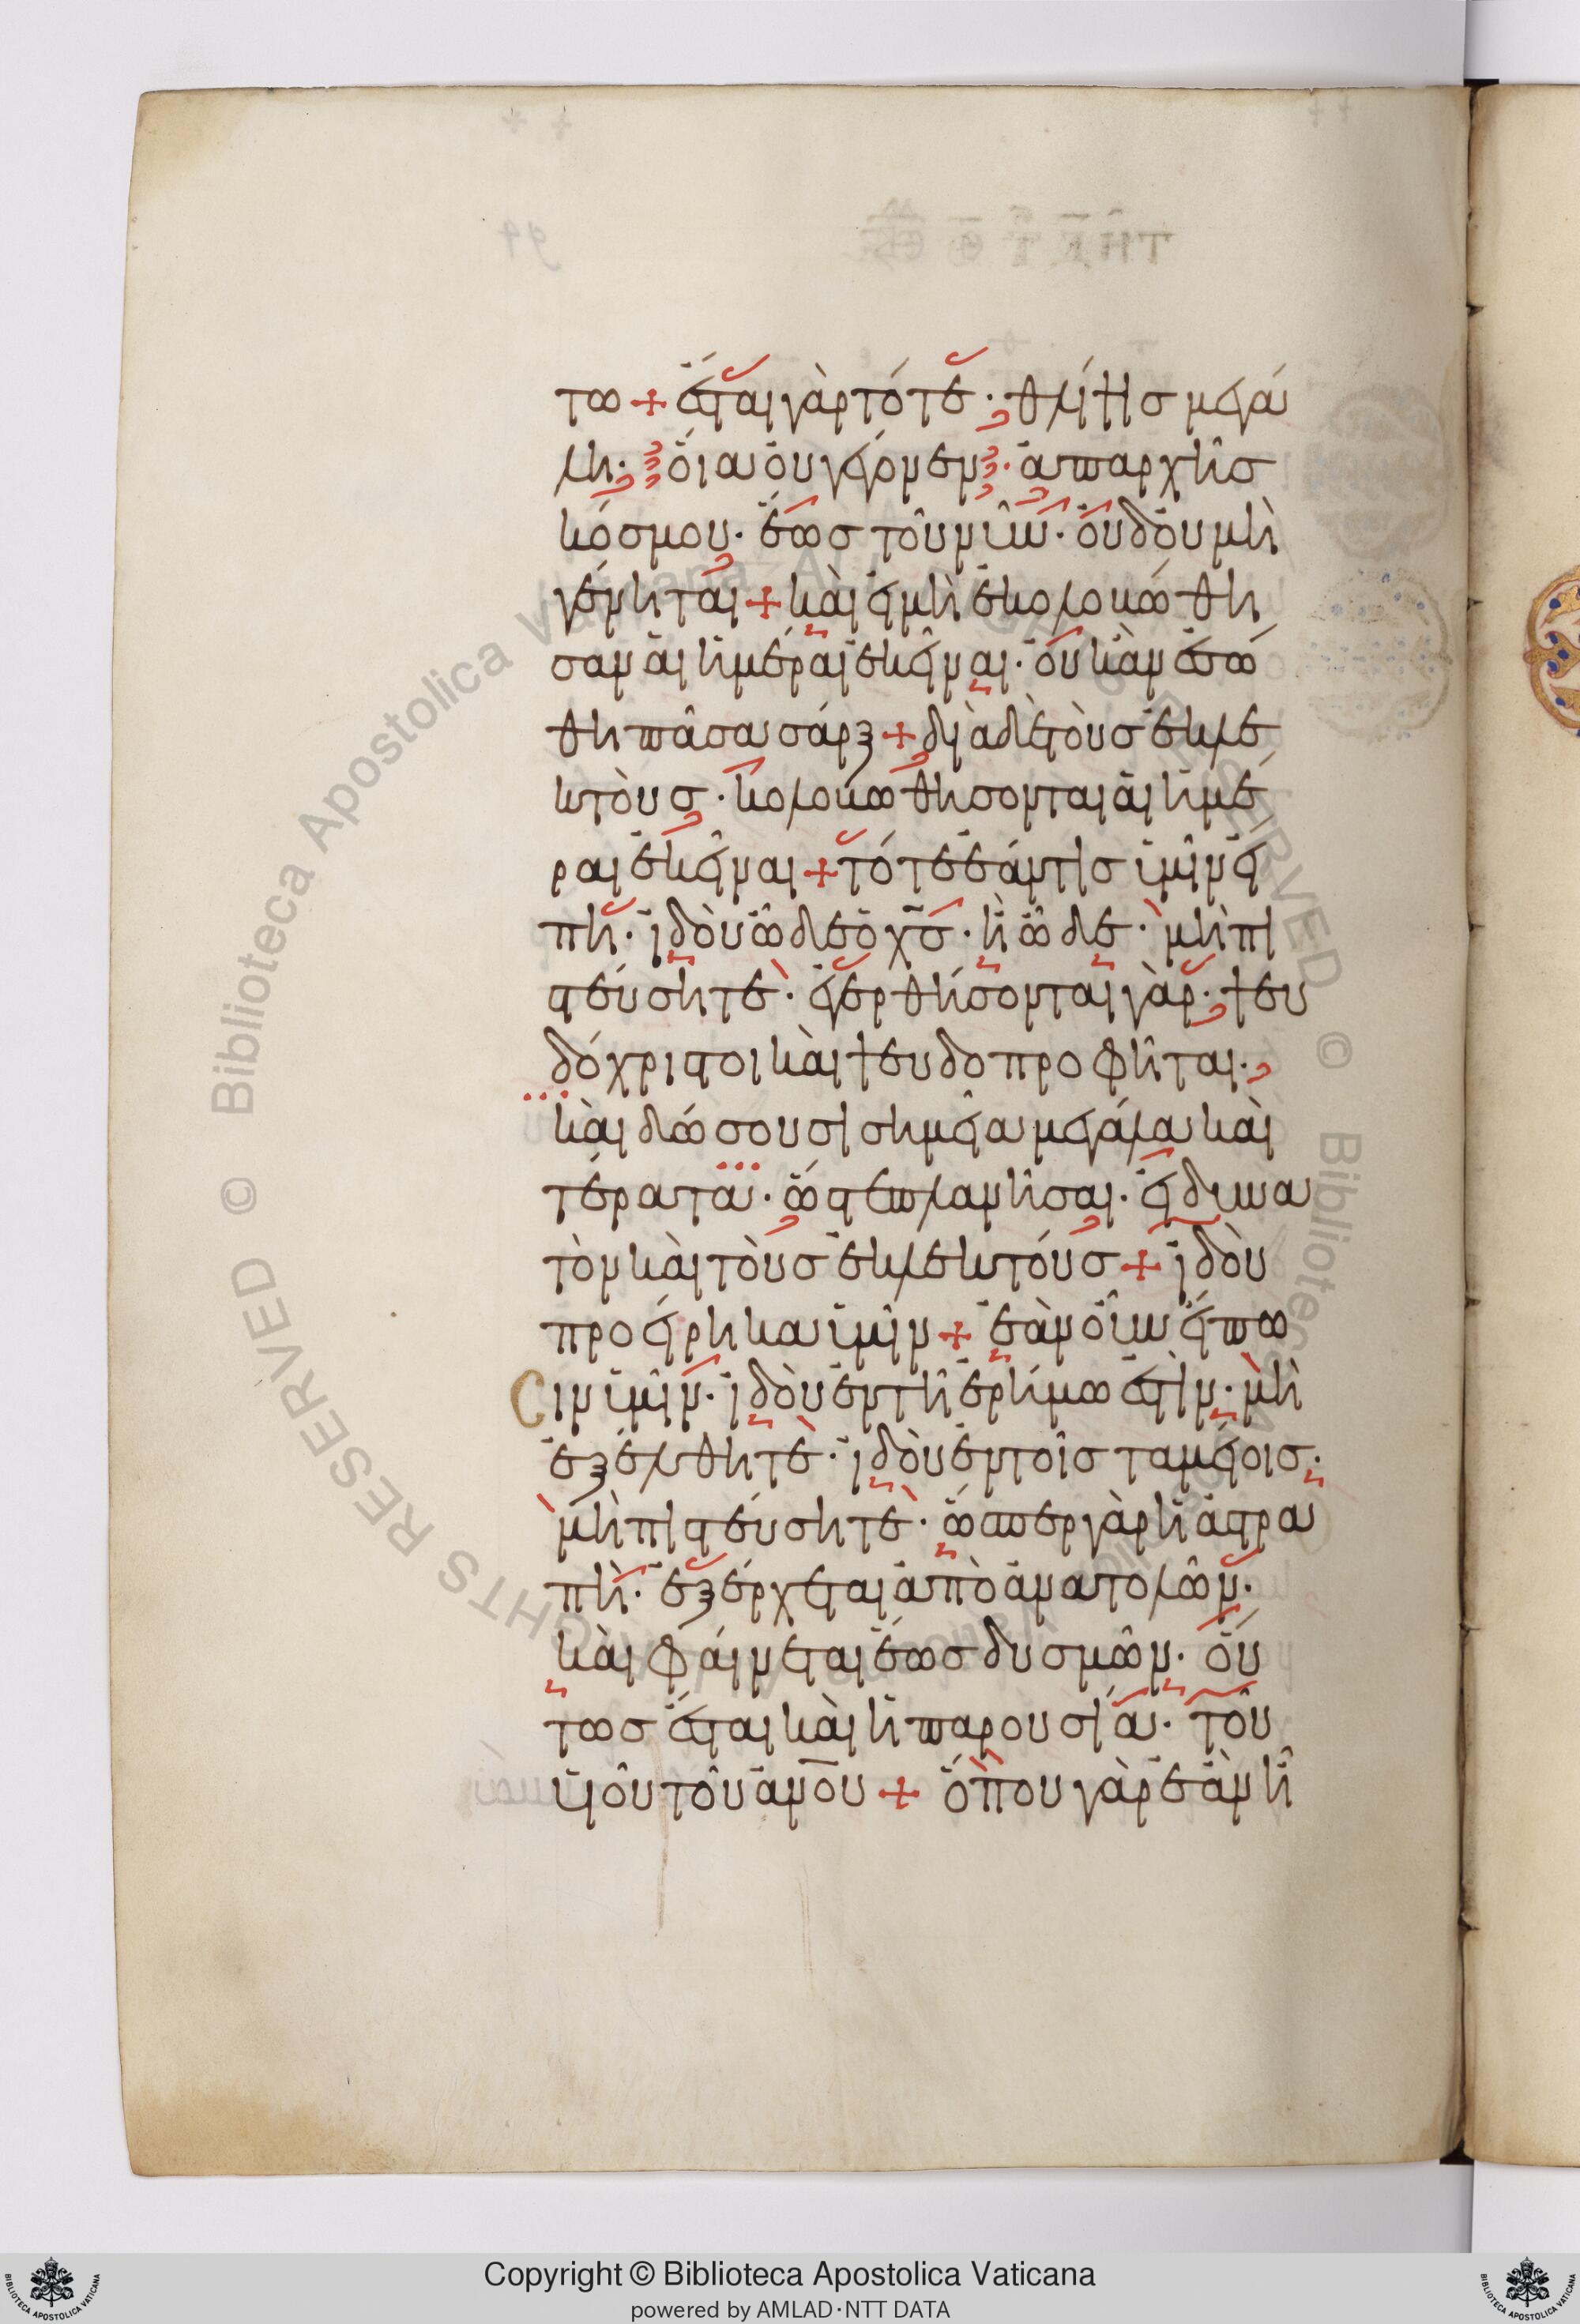 τω + ἔσται γὰρ τότε · θλίψισ μεγά
λη · οἵα οὐ γέγονεν · ἀπαρχῆσ
κόσμου · ἕωσ τοῦ νῦν · οὐδ οὐ μὴ
γένηται + καὶ εἰ μὴ ἐκολοβώθη
σαν αἱ ἡμέραι ἐκεῖναι · οὐκ ἂν ἐσώ
θη πᾶσα σάρξ + διὰ δὲ τοὺσ ἐκλε
κτοὺσ · κολοβωθήσονται αἱ ἡμέ
ραι ἐκεῖναι + τότε ἐάν τισ ὑμῖν εἴ
πη · ἰδοὺ ὧδε ὁ χσ · ἢ ὧδε · μὴ πι
στεύσητε · ἐγερθήσονται γὰρ · ψευ
δόχριστοι καὶ ψευδοπροφῆται ·
καὶ δώσουσι σημεῖα μεγάλα καὶ
τέρατα · ὥστε πλανῆσαι · εἰ δυνα
τὸν καὶ τοὺσ ἐκλεκτούσ + ἰδοὺ
προείρηκα ὑμῖν + ἐὰν οὖν εἴπω
Cιν ὑμῖν · ἰδοὺ ἐν τῆ ἐρήμω ἐστὶν · μὴ
ἐξέλθητε · ἰδοὺ ἐν τοῖσ ταμείοισ ·
μὴ πιστεύσητε · ὥσπερ γὰρ ἡ ἀστρα
πὴ · ἐξέρχεται ἀπὸ ἀνατολῶν ·
καὶ φαίνεται ἕωσ δυσμῶν · οὕ
τωσ ἔσται καὶ ἡ παρουσία · τοῦ
υἱοῦ τοῦ ἀνου + ὅπου γὰρ ἐὰν ἦ
Copyright © Biblioteca Apostolica Vaticana
powered by AMLAD·NTT DATA